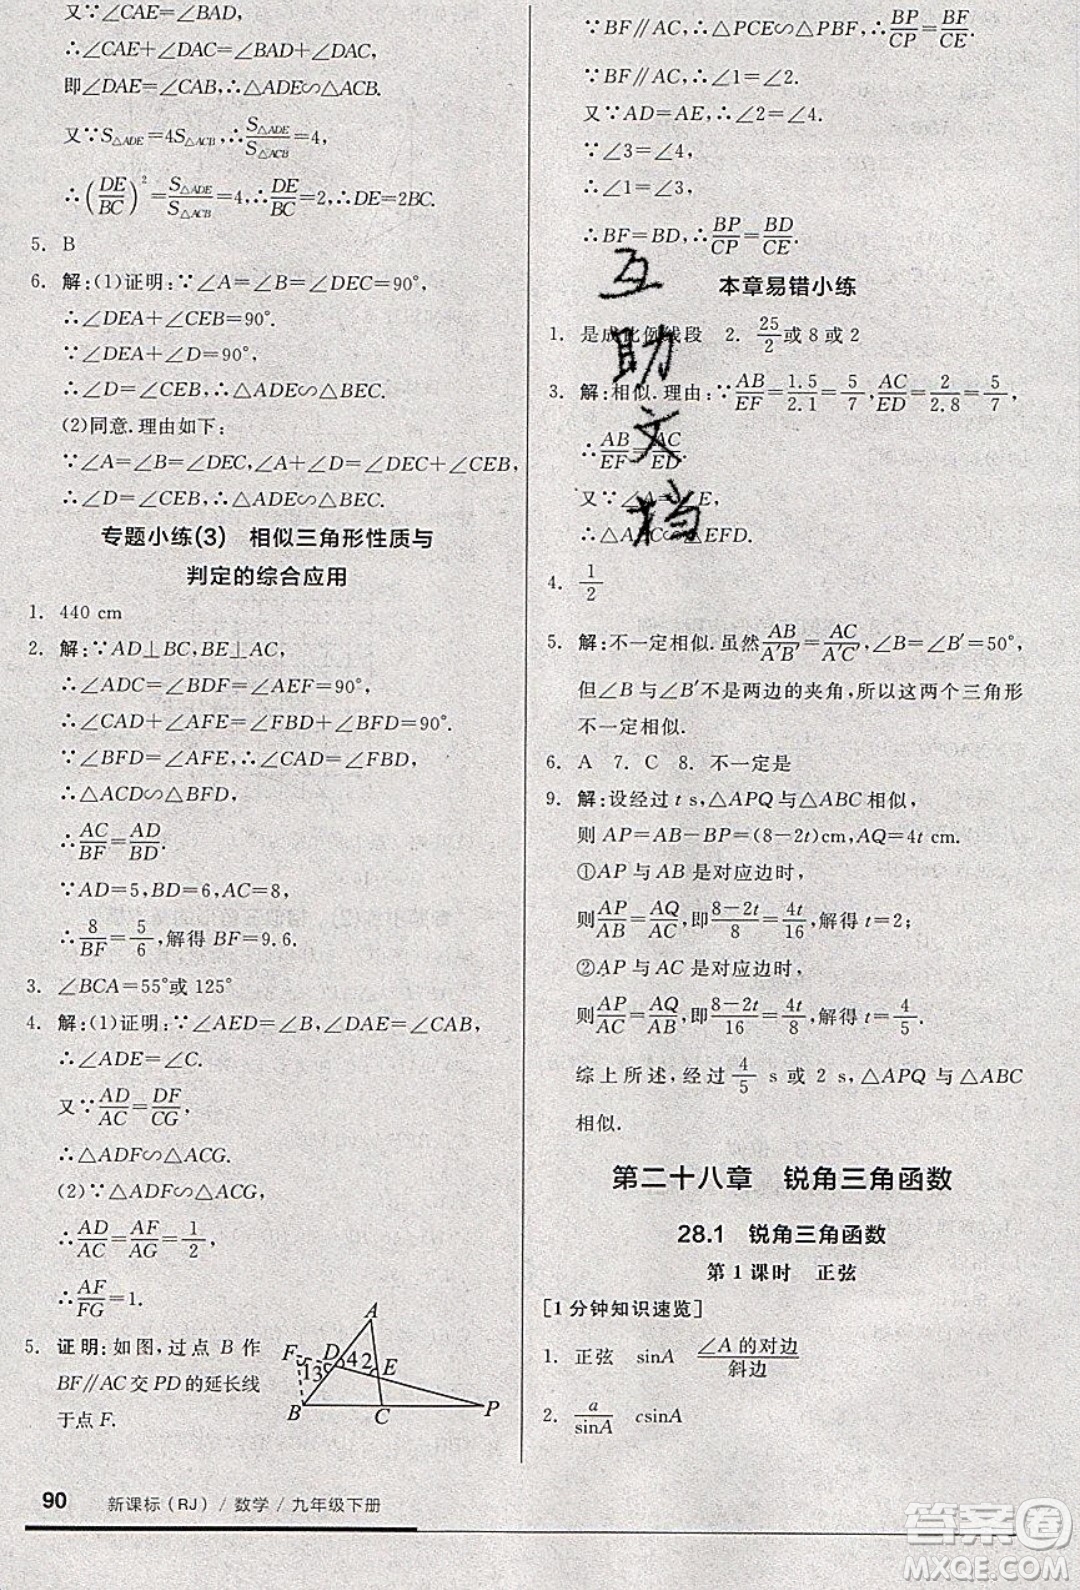 又∵∠CAE=∠BAD,
∴∠CAE+∠DAC=∠BAD+∠DAC,
即∠DAE=∠CAB,∴△ADE∽△ACB.
又∵S△ADE=4S△ACB,∴S△ADE/S△ACB=4,
∴(DE/BC)²=S△ADE/S△ACB=4,∴DE/BC=2,∴DE=2BC.
5. B
6. 解:(1)证明:∵∠A=∠B=∠DEC=90°,
∴∠DEA+∠CEB=90°.
∵∠DEA+∠D=90°,
∴∠D=∠CEB,∴△ADE∽△BEC.
(2)同意.理由如下:
∵∠A=∠B=∠DEC,∠A+∠D=∠DEC+∠CEB,
∴∠D=∠CEB,∴△ADE∽△BEC.
专题小练(3) 相似三角形性质与
判定的综合应用
1. 440 cm
2. 解:∵AD⊥BC,BE⊥AC,
∴∠ADC=∠BDF=∠AEF=90°,
∴∠CAD+∠AFE=∠FBD+∠BFD=90°.
∵∠BFD=∠AFE,∴∠CAD=∠FBD,
∴△ACD∽△BFD,
∴AC/BF=AD/BD.
∵AD=5,BD=6,AC=8,
∴8/BF=5/6,解得 BF=9.6.
3. ∠BCA=55°或 125°
4. 解:(1)证明:∵∠AED=∠B,∠DAE=∠CAB,
∴∠ADE=∠C.
又∵AD/AC=DF/CG,
∴△ADF∽△ACG.
(2)∵△ADF∽△ACG,
∴AD/AC=AF/AG=1/2,
∴AF/FG=1.
5. 证明:如图,过点 B 作
BF∥AC 交 PD 的延长线
于点 F.
A
F D 4 2 E
1 3
B C P
90 新课标(RJ)/数学/九年级下册
∵BF∥AC,∴△PCE∽△PBF,∴BP/CP=BF/CE.
∵BF∥AC,∴∠1=∠2.
又∵AD=AE,∴∠2=∠4.
∵∠3=∠4,
∴∠1=∠3,
∴BF=BD,∴BP/CP=BD/CE.
本章易错小练
1. 是成比例线段 2. 25/2或 8 或 2
3. 解:相似.理由:∵AB/EF=1.5/2.1=5/7,AC/ED=2/2.8=5/7,
∴AB/EF=AC/ED.
又∵∠A=∠E,
∴△ABC∽△EFD.
4. 1/2
5. 解:不一定相似.虽然AB/A′B′=AC/A′C′,∠B=∠B′=50°,
但∠B 与∠B′不是两边的夹角,所以这两个三角形
不一定相似.
6. A 7. C 8. 不一定是
9. 解:设经过 t s,△APQ 与△ABC 相似,
则 AP=AB-BP=(8-2t)cm,AQ=4t cm.
①AP 与 AB 是对应边时,
则AP/AB=AQ/AC,即8-2t/8=4t/16,解得 t=2;
②AP 与 AC 是对应边时,
则AP/AC=AQ/AB,即8-2t/16=4t/8,解得 t=4/5.
综上所述,经过 4/5 s 或 2 s,△APQ 与△ABC
相似.
第二十八章 锐角三角函数
28.1 锐角三角函数
第 1 课时 正弦
[1 分钟知识速览]
1. 正弦 sinA ∠A 的对边/斜边
2. a/sinA csinA
互助文档
答案圈
MXQE.COM